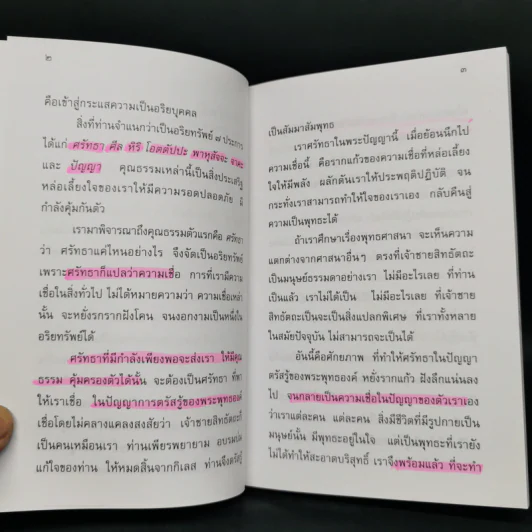 ๒
คือเข้าสู่กระแสความเป็นอริยบุคคล
สิ่งที่ท่านจำแนกว่าเป็นอริยทรัพย์ ๘ ประการ
ได้แก่ ศรัทธา ศีล หิริ โอตตัปปะ พาหุสัจจะ จาคะ
และ ปัญญา คุณธรรมเหล่านี้เป็นสิ่งประเสริฐ
หล่อเลี้ยงใจของเราให้มีความรอดปลอดภัย มี
กำลังคุ้มกันตัว
เรามาพิจารณาถึงคุณธรรมตัวแรกคือ ศรัทธา
ว่า ศรัทธาแค่ไหนอย่างไร จึงจัดเป็นอริยทรัพย์
เพราะศรัทธาก็แปลว่าความเชื่อ การที่เรามีความ
เชื่อในสิ่งทั่วไป ไม่ได้หมายความว่า ความเชื่อเหล่า
นั้น จะหยั่งรากรากฝังโคน จนงอกงามเป็นหนึ่งใน
อริยทรัพย์ได้
ศรัทธาที่มีกำลังเพียงพอจะส่งเรา ให้มีคุณ
ธรรม คุ้มครองตัวได้นั้น จะต้องเป็นศรัทธา ที่พา
ให้เราเชื่อ ในปัญญาการตรัสรู้ของพระพุทธองค์
เชื่อโดยไม่คลางแคลงสงสัยว่า เจ้าชายสิทธัตถะก็
เป็นคนเหมือนเรา ท่านเพียรพยายาม อบรมบ่ม
แก้ใจของท่าน ให้หมดสิ้นจากกิเลส ท่านจึงตรัสรู้
๓
เป็นสัมมาสัมพุทธ
เราศรัทธาในพระปัญญานี้ เมื่อย้อนนึกไป
ความเชื่อนี้ คือรากแก้วของความเชื่อที่หล่อเลี้ยง
ใจให้มีพลัง ผลักดันเราให้ประพฤติปฏิบัติ จน
กระทั่งเราสามารถทำให้ใจของเราเอง กลับคืนสู่
ความเป็นพุทธะได้
ถ้าเราศึกษาเรื่องพุทธศาสนา จะเห็นความ
แตกต่างจากศาสนาอื่นๆ ตรงที่เจ้าชายสิทธัตถะ
เป็นมนุษย์ธรรมดาอย่างเรา ไม่มีอะไรเลย ที่ท่าน
เป็นแล้ว เราไม่ได้เป็น ไม่มีอะไรเลย ที่เจ้าชาย
สิทธัตถะเป็นจะเป็นสิ่งแปลกพิเศษ ที่เราทั้งหลาย
ในสมัยปัจจุบัน ไม่สามารถจะเป็นได้
อันนี้คือศักยภาพ ที่ทำให้ศรัทธาในปัญญา
ตรัสรู้ของพระพุทธองค์ หยั่งรากแก้ว ฝังลึกแน่นลง
ไป จนกลายเป็นความเชื่อในปัญญาของตัวเราเอง
ว่าเราแต่ละคน แต่ละคน สิ่งมีชีวิตที่มีรูปกายเป็น
มนุษย์นั้น มีพุทธะอยู่ในใจ แต่เป็นพุทธะที่เรายัง
ไม่ได้ทำให้สะอาดบริสุทธิ์ เราจึงพร้อมแล้ว ที่จะทำ